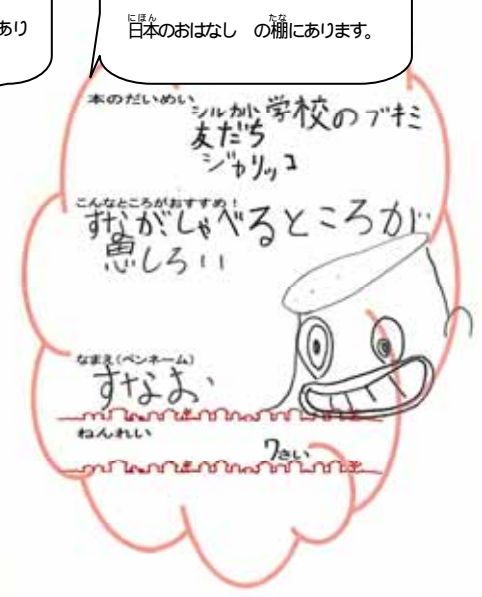 あり
日本のおはなし の棚にあります。
本のだいめい
シルカ小学校のブキミ
友だち
ジャリッコ
こんなところがおすすめ！
すながしゃべるところが
思しろい
なまえ(ペンネーム)
すなお
ねんれい
7さい